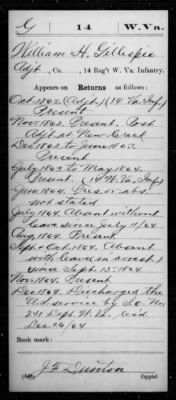 G 14 W.Va.
William H. Gillespie
Adjt, Co. , 14 Reg't W. Va. Infantry.
Appears on Returns as follows:
Oct. 1862 (Adjt.) (14 Va. Inf.)
Present
Nov. 1862. Post
Adjt at New Creek
Dec 1862 to June 1863.
Present
July 1863 to May 1864.
Present (14 W. Va. Inf.)
June 1864. Pres. or abs.
not stated
July 1864 Absent without
leave since July 11/64
Aug. 1864. Present
Sept & Oct. 1864. Absent
with leave in arrest
since Sept. 15-1864
Nov. 1864. Present
Dec. 1864. Discharged the
U.S. service by S.O. No
241 Dept. W. Va.
Dec 26/64
Book mark:
Copyist.